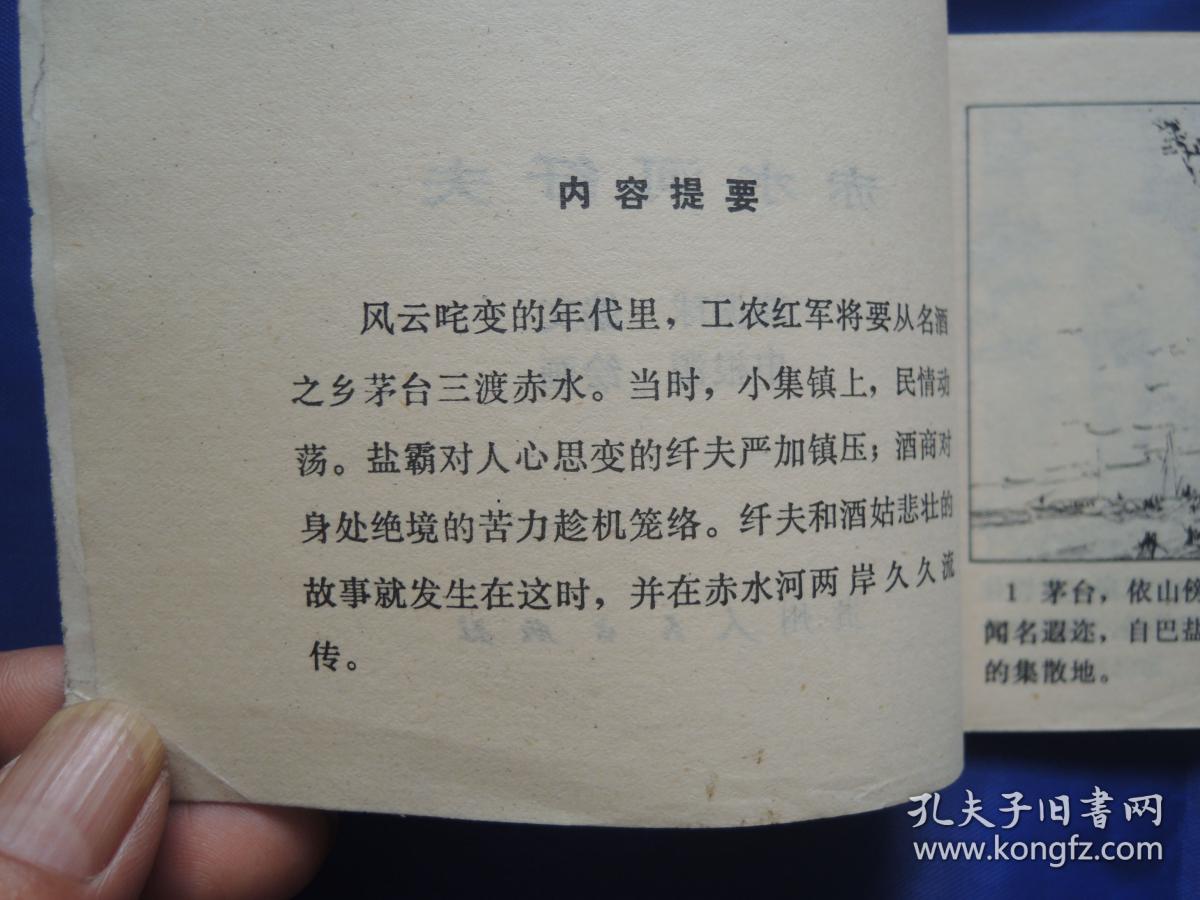 内容提要
风云咤变的年代里，工农红军将要从名酒
之乡茅台三渡赤水。当时，小集镇上，民情动
荡。盐霸对人心思变的纤夫严加镇压；酒商对
身处绝境的苦力趁机笼络。纤夫和酒姑悲壮的
故事就发生在这时，并在赤水河两岸久久流
传。
1 茅台，依山傍
闻名遐迩，自巴盐
的集散地。
孔夫子旧书网
www.kongfz.com